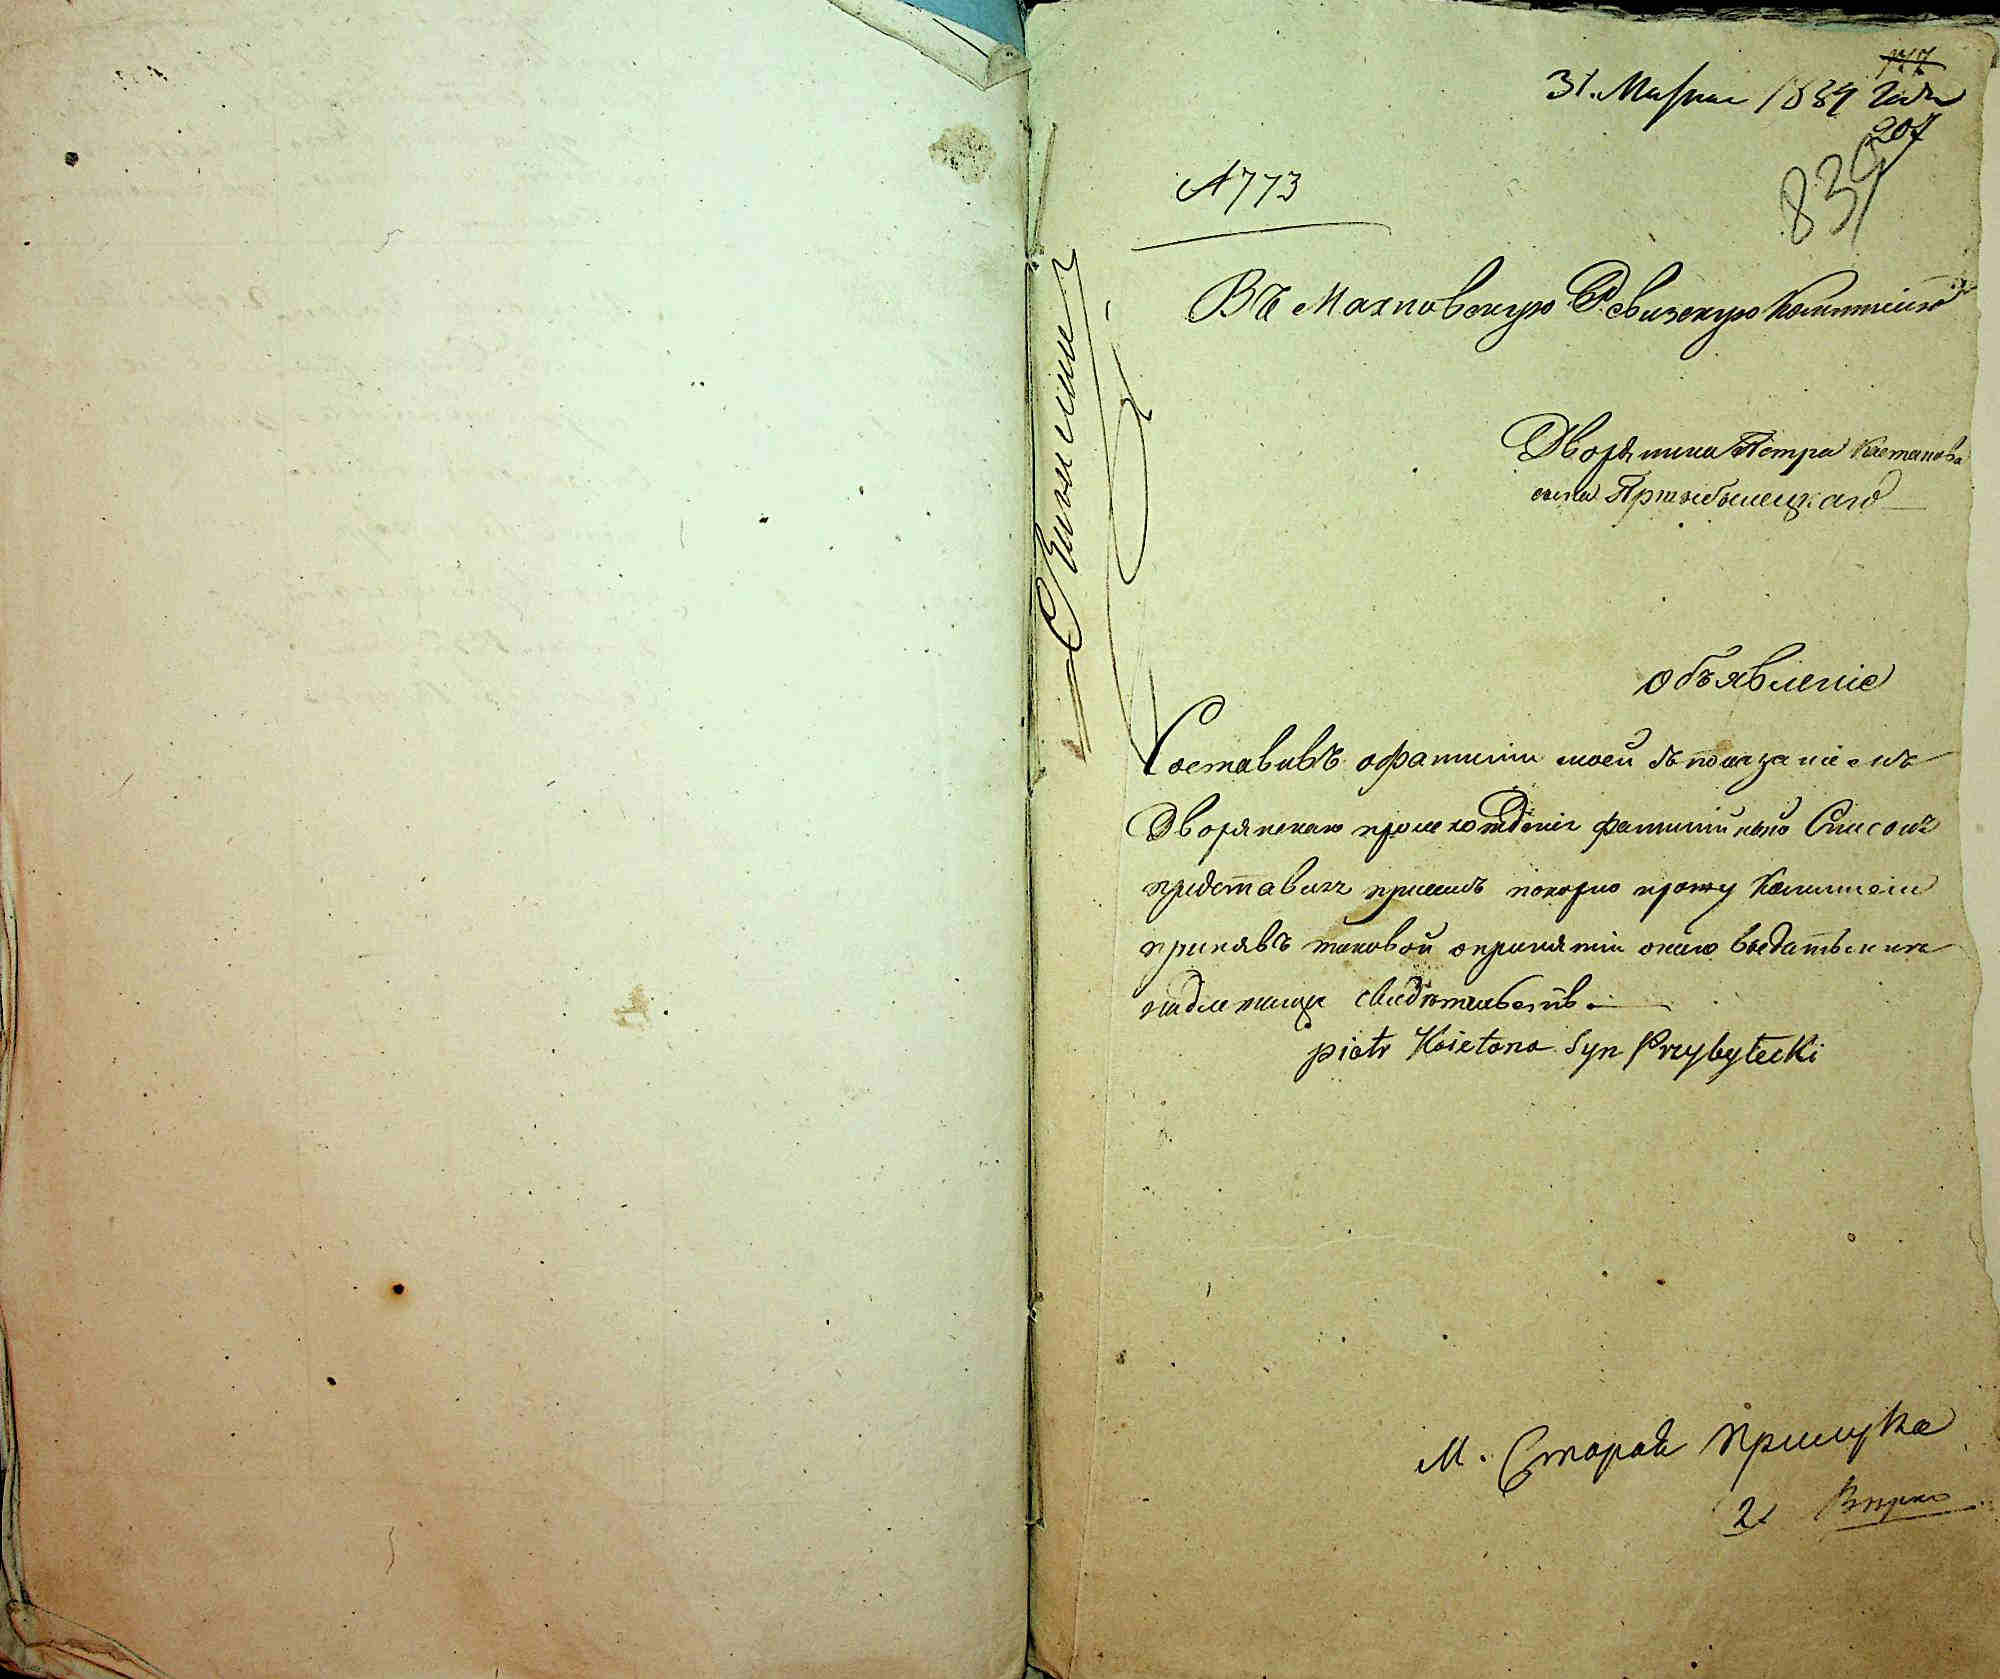 177
31. Марта 1834 Года
207
839
№ 773
Въ Махновскую Ревизскую Коммисию
Дворянина Петра Каетанова
сына Пржыбылецкаго
Объявленіе
Составивъ о фамиліи моей съ показаніемъ
Дворянскаго происхожденія фамилійный Списокъ
представляя при семъ покорно прошу Коммисіи
принявъ таковой о принятіи онаго выдать мне
надлежащее свидѣтельство.
Piotr Kaietana Syn Przybyłecki
М. Старая Прилука